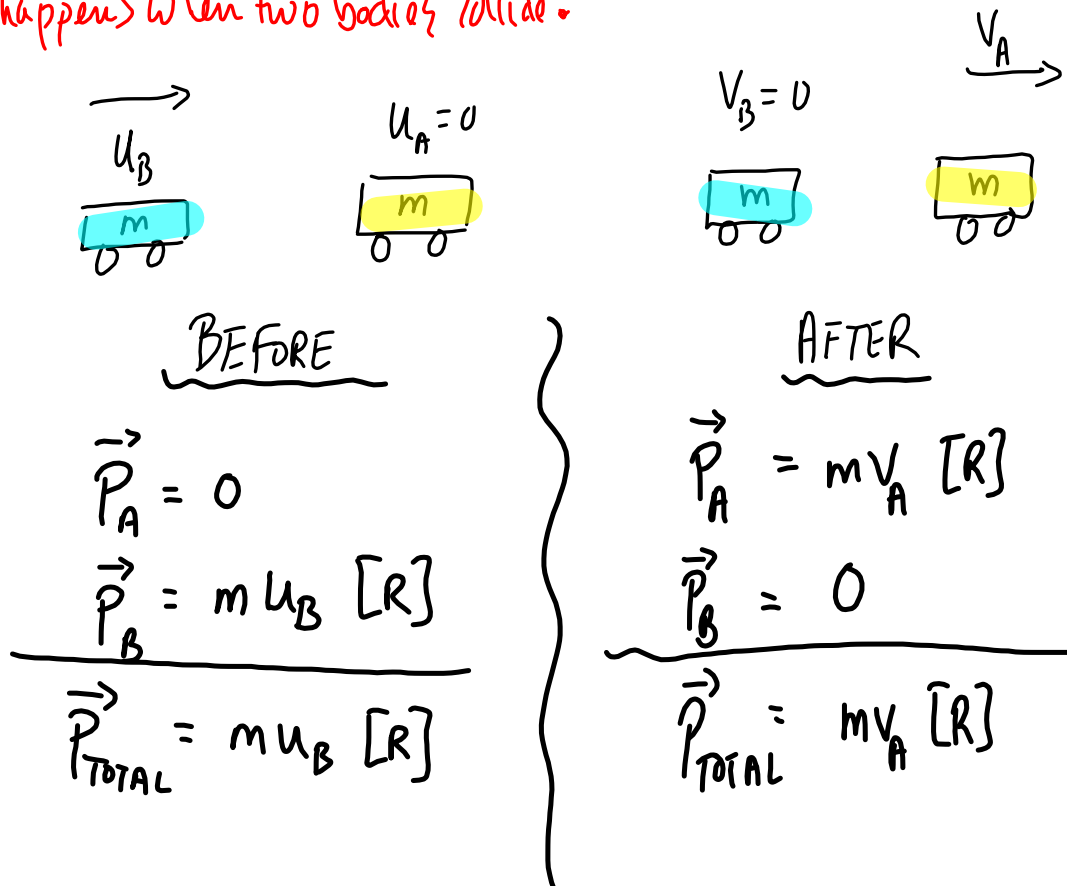 happens when two bodies collide.
u_B
u_A = 0
V_B = 0
V_A
m
m
m
m
BEFORE
P⃗_A = 0
P⃗_B = m u_B [R]
P⃗_TOTAL = m u_B [R]
AFTER
P⃗_A = m V_A [R]
P⃗_B = 0
P⃗_TOTAL = m V_A [R]